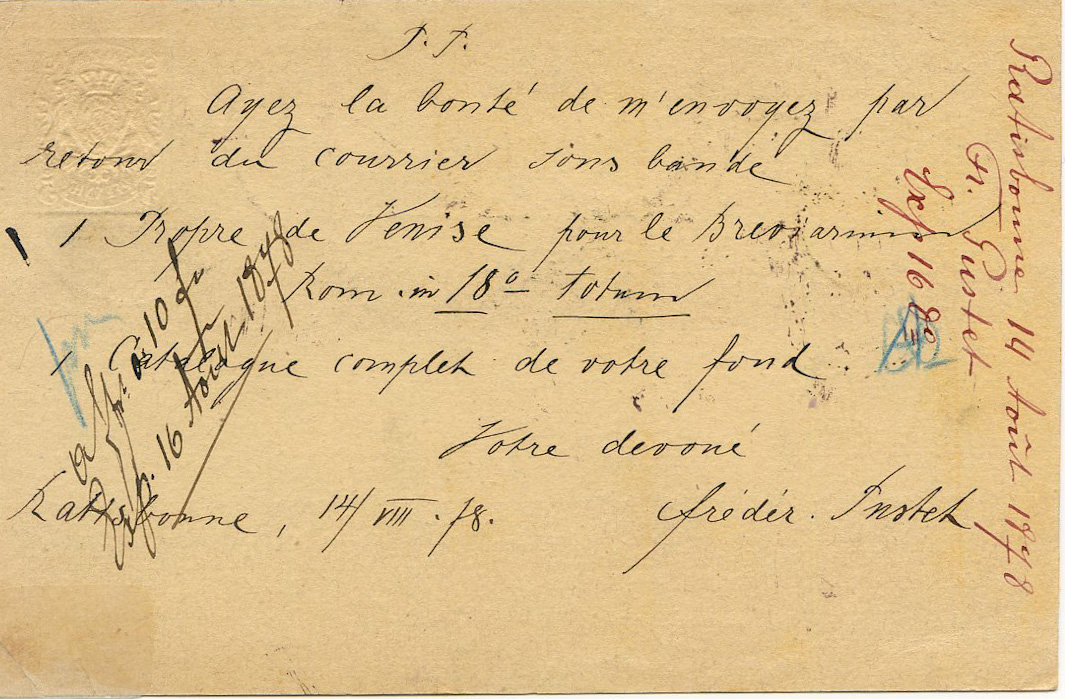 P. P.
Ayez la bonté de m'envoyez par
retour du courrier sous bande
1 Propre de Venise pour le Breviarium
Rom. in 18° totum
1 Catalogue complet de votre fond
Votre devoué
Ratisbonne, 14/VIII. 78.
frédér. Pustet
10
16 Août 1878
Ratisbonne 14 Août 1878
Fr. Pustet
Exp 16 do